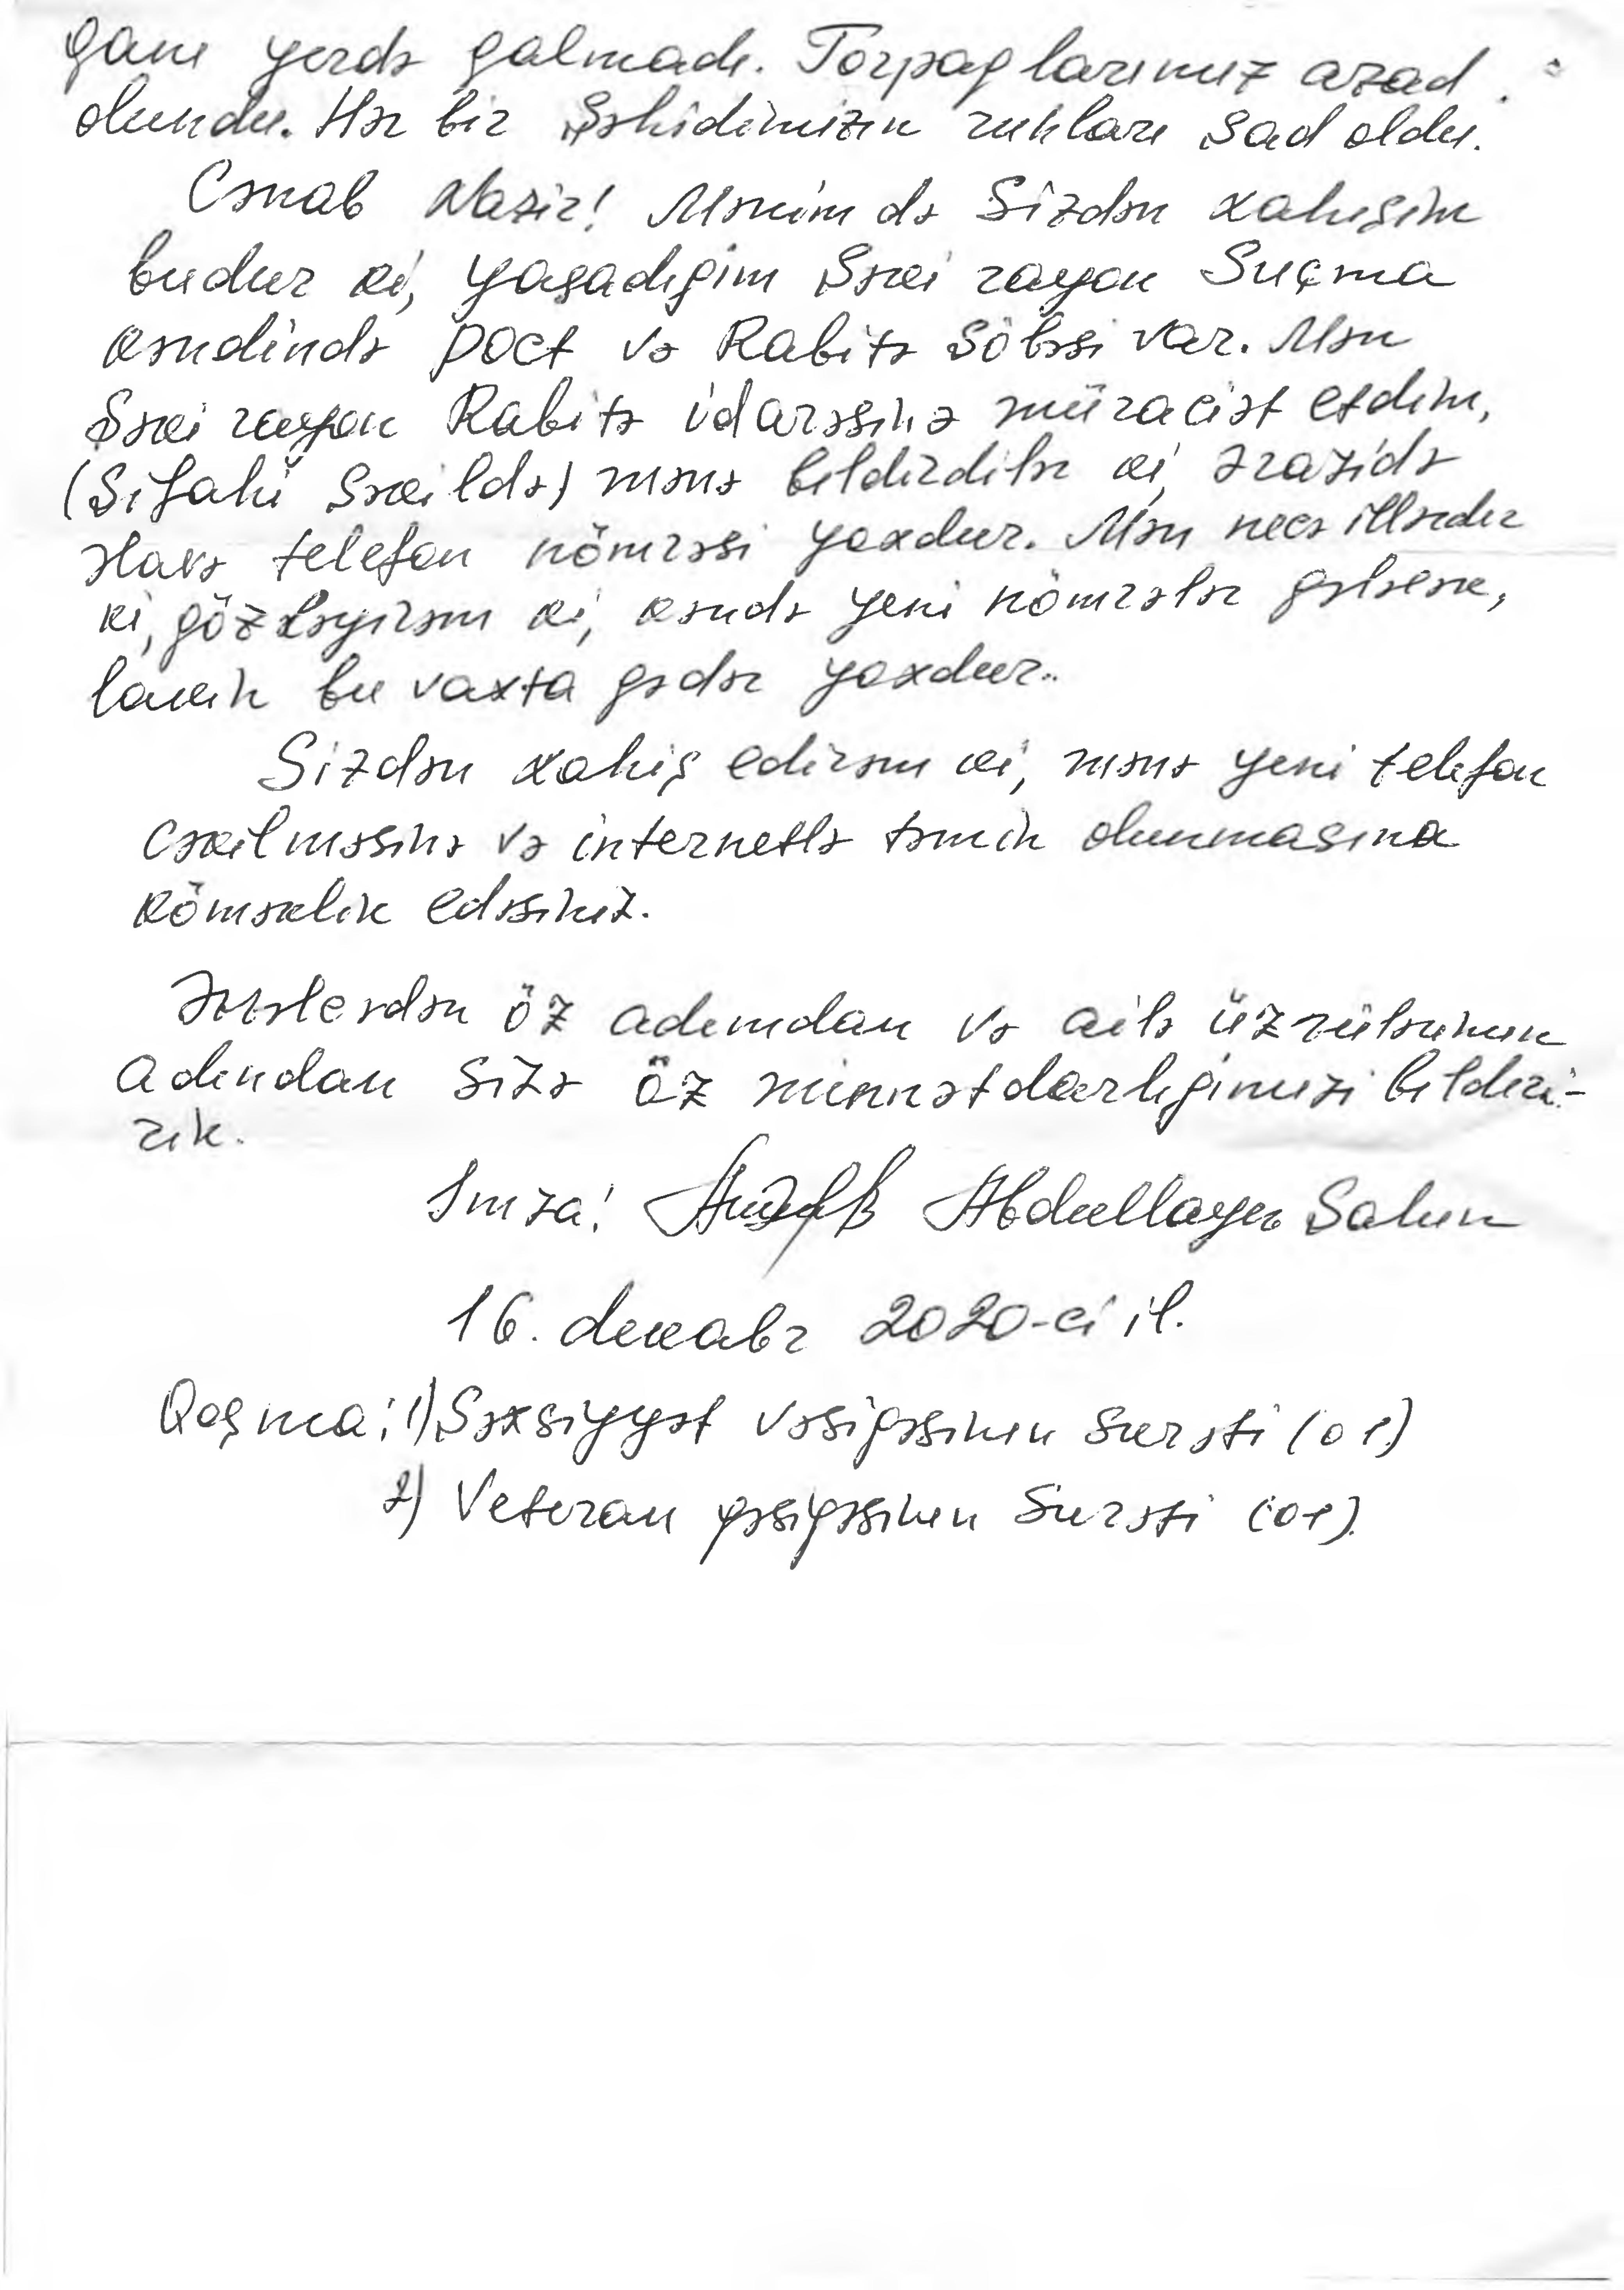 qanı yerdə qalmadı. Torpaqlarımız azad
olundu. Hər bir Şəhidimizin ruhları şad oldu.
Cənab Nazir! Mənim də Sizdən xahişim
budur ki, yaşadığım Şəki rayon Suçma
kəndində poct və Rabitə şöbəsi var. Mən
Şəki rayon Rabitə idarəsinə müraciət etdim,
(Şifahi Şəkildə) mənə bildirdilər ki, ərazidə
əlavə telefon nömrəsi yoxdur. Mən necə illərdir
ki, gözləyirəm ki, kəndə yeni nömrələr gələcək,
lakin bu vaxta qədər yoxdur..
Sizdən xahiş edirəm ki, mənə yeni telefon
çəkilməsinə və internetlə təmin olunmasına
köməklik edəsiniz.
Əvvəlcədən öz adımdan və ailə üzvülərimin
adından sizə öz minnətdarlığımızı bildiri-
rik.
İmza: Abdullayev Salım
16. dekabr 2020-ci il.
Qoşma: 1) Şəxsiyyət vəsiqəsinin surəti (01)
2) Veteran vəsiqəsinin surəti (01).